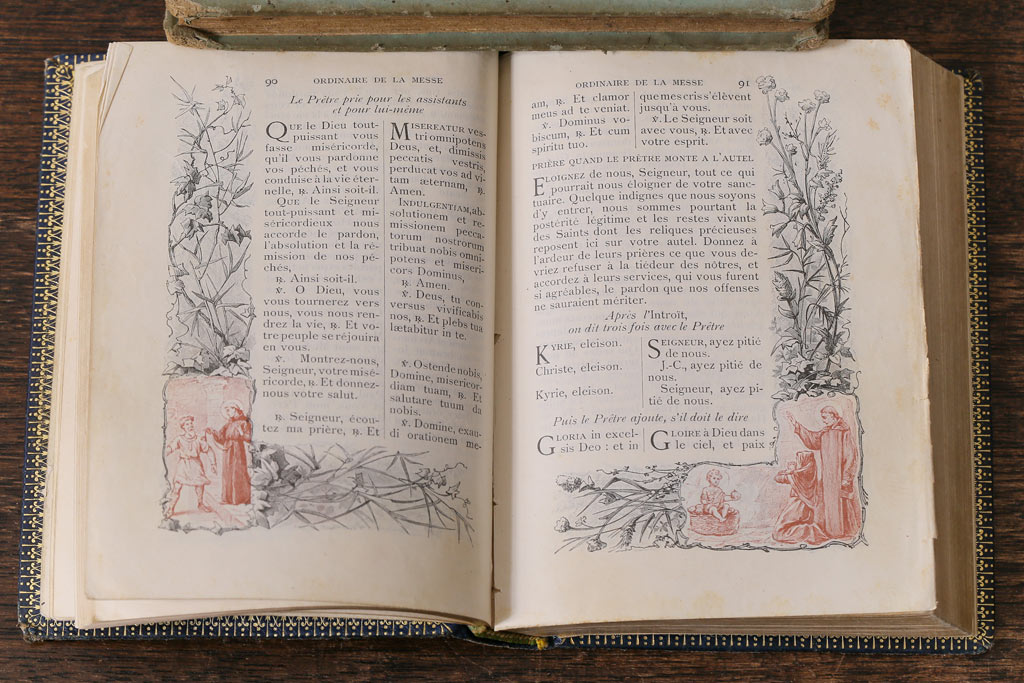 90 ORDINAIRE DE LA MESSE
Le Prêtre prie pour les assistants
et pour lui-même
QUE le Dieu tout-
puissant vous
fasse miséricorde,
qu'il vous pardonne
vos péchés, et vous
conduise à la vie éter-
nelle, ℟. Ainsi soit-il.
QUE le Seigneur
tout-puissant et mi-
séricordieux nous
accorde le pardon,
l'absolution et la ré-
mission de nos pé-
chés,
℟. Ainsi soit-il.
℣. O Dieu, vous
vous tournerez vers
nous, vous nous ren-
drez la vie, ℟. Et vo-
tre peuple se réjouira
en vous.
℣. Montrez-nous,
Seigneur, votre misé-
ricorde, ℟. Et donnez-
nous votre salut.
℟. Seigneur, écou-
tez ma prière, ℟. Et
MISEREATUR ves-
tri omnipotens
Deus, et, dimissis
peccatis vestris,
perducat vos ad vi-
tam æternam, ℟.
Amen.
INDULGENTIAM, ab-
solutionem et re-
missionem pecca-
torum nostrorum
tribuat nobis omni-
potens et miseri-
cors Dominus,
℟. Amen.
℣. Deus, tu con-
versus vivificabis
nos, ℟. Et plebs tua
lætabitur in te.
℣. Ostende nobis,
Domine, misericor-
diam tuam, ℟. Et
salutare tuum da
nobis.
℣. Domine, exau-
di orationem me-
ORDINAIRE DE LA MESSE 91
am, ℟. Et clamor
meus ad te veniat.
℣. Dominus vo-
biscum, ℟. Et cum
spiritu tuo.
que mes cris s'élèvent
jusqu'à vous.
℣. Le Seigneur soit
avec vous, ℟. Et avec
votre esprit.
PRIÈRE QUAND LE PRÊTRE MONTE A L'AUTEL
ELOIGNEZ de nous, Seigneur, tout ce qui
pourrait nous éloigner de votre sanc-
tuaire. Quelque indignes que nous soyons
d'y entrer, nous sommes pourtant la
postérité légitime et les restes vivants
des Saints dont les reliques précieuses
reposent ici sur votre autel. Donnez à
l'ardeur de leurs prières ce que vous de-
vriez refuser à la tiédeur des nôtres, et
accordez à leurs services, qui vous furent
si agréables, le pardon que nos offenses
ne sauraient mériter.
Après l'Introït,
on dit trois fois avec le Prêtre
KYRIE, eleison.
Christe, eleison.
Kyrie, eleison.
SEIGNEUR, ayez pitié
de nous.
J.-C., ayez pitié de
nous.
Seigneur, ayez pi-
tié de nous.
Puis le Prêtre ajoute, s'il doit le dire
GLORIA in excel-
sis Deo : et in
GLOIRE à Dieu dans
le ciel, et paix